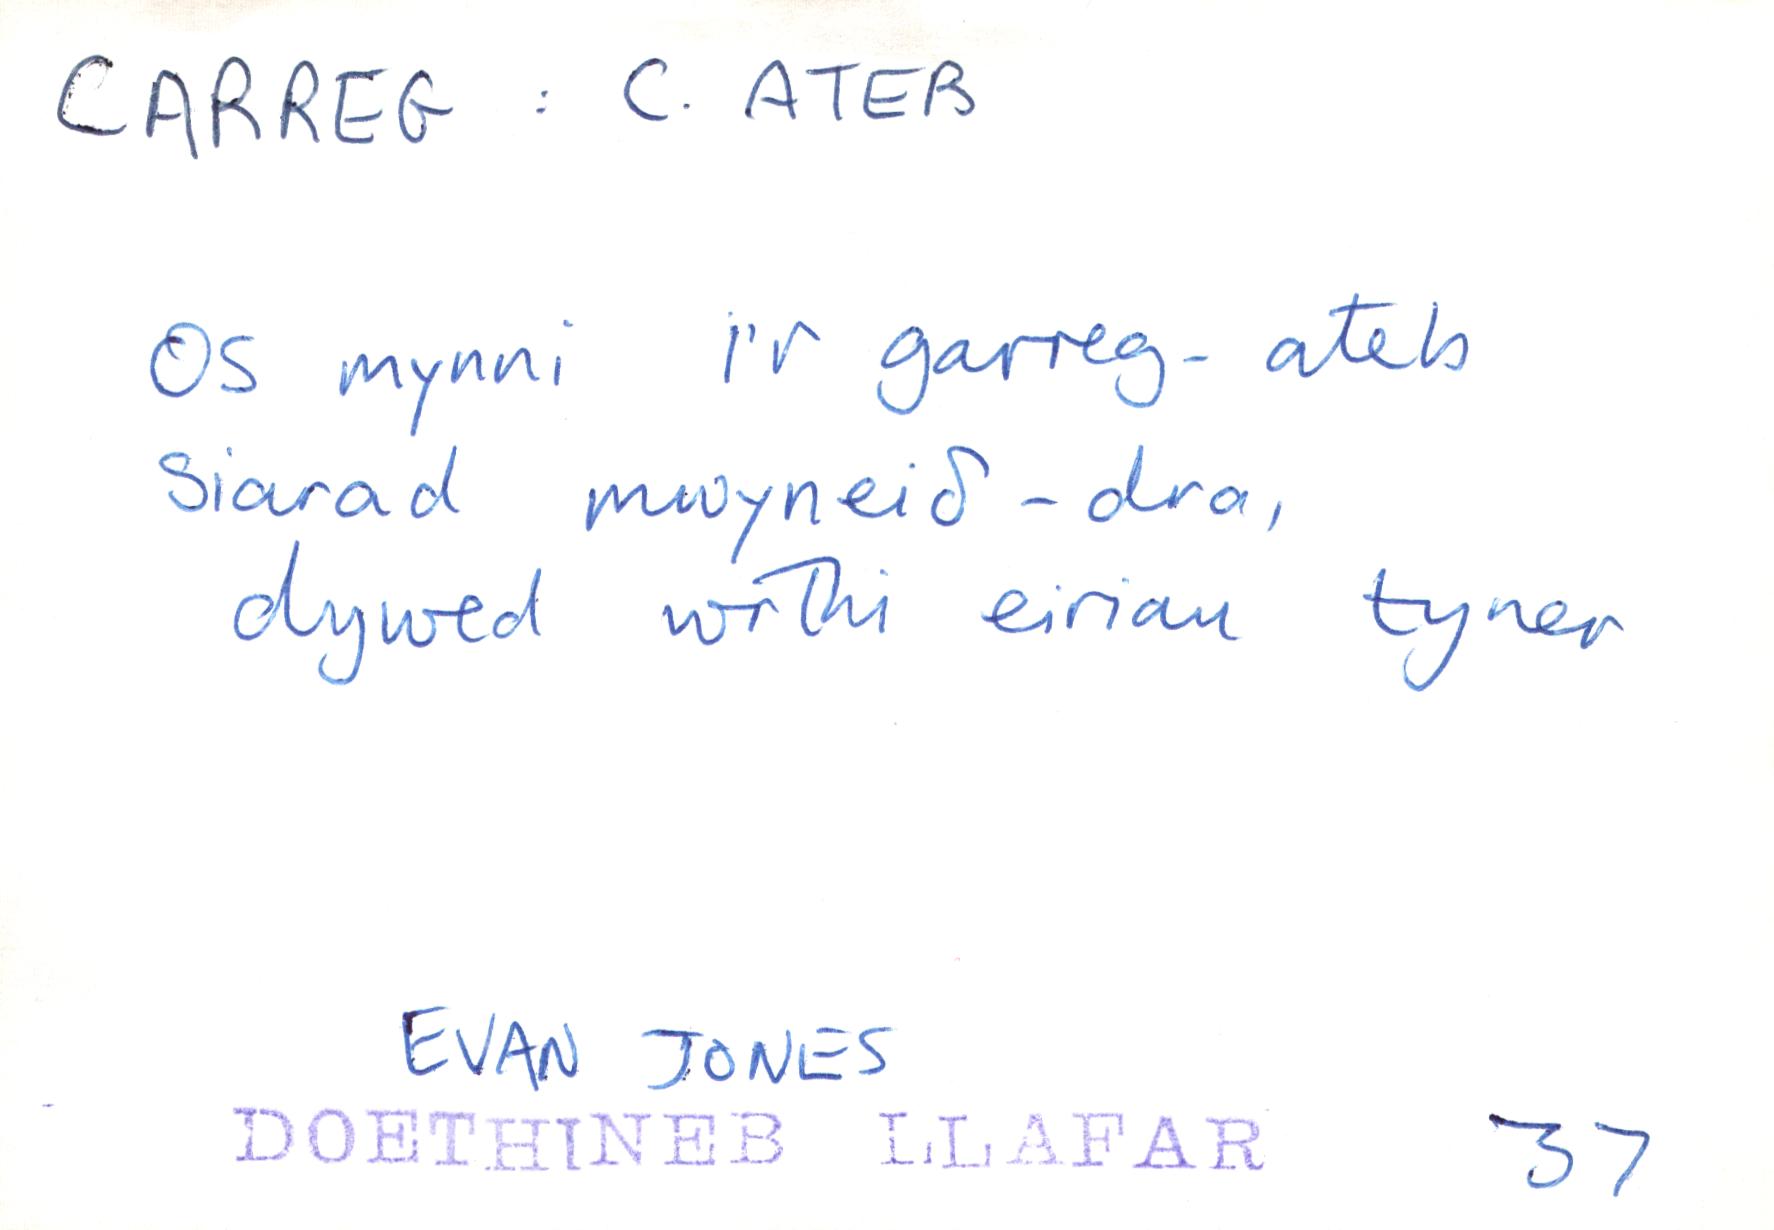 CARREG : C. ATEB
Os mynni i'r garreg-ateb
Siarad mwyneiδ-dra,
dywed wrthi eiriau tyner
EVAN JONES
DOETHINEB LLAFAR 37